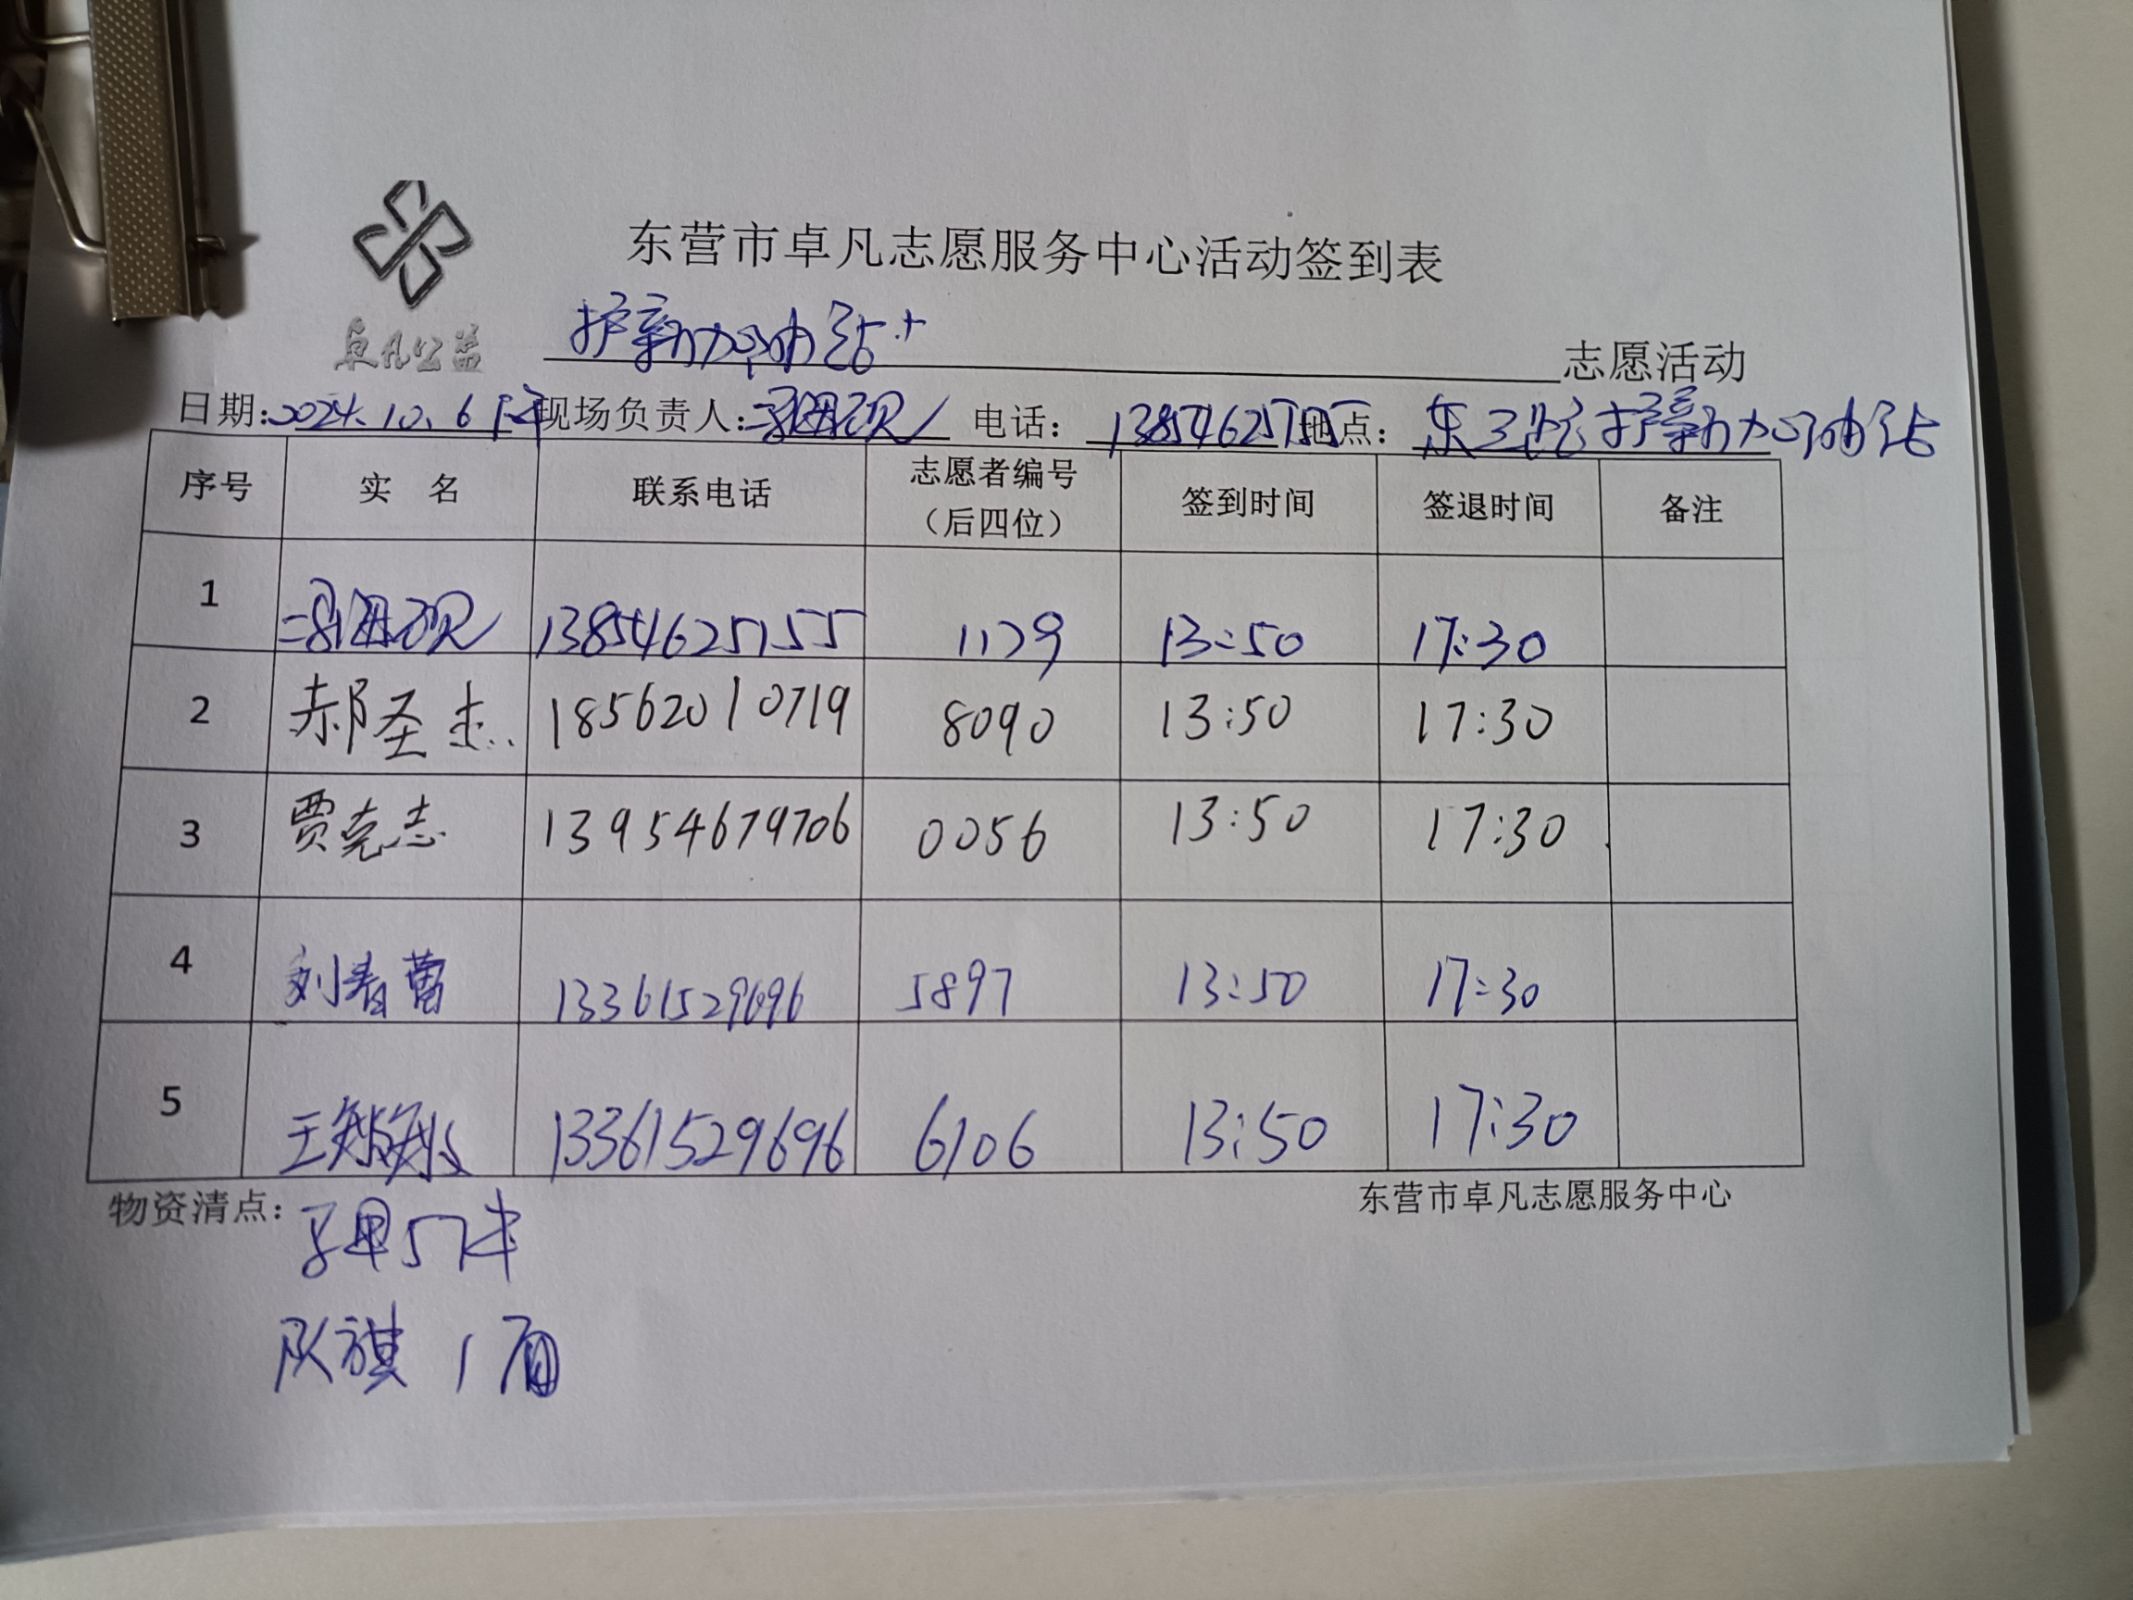 东营市卓凡志愿服务中心活动签到表
卓凡公益
护新加油站+ 志愿活动
日期:2024.10.6下午 现场负责人: 电话: 13854625155 地点: 护新加油站
序号 实 名 联系电话 志愿者编号（后四位） 签到时间 签退时间 备注
1 13854625155 1129 13:50 17:30
2 郝圣杰 18562010719 8090 13:50 17:30
3 贾克志 13954679706 0056 13:50 17:30
4 刘春蕾 13361529696 5897 13:50 17:30
5 王 13361529696 6106 13:50 17:30
物资清点: 马甲5件
东营市卓凡志愿服务中心
队旗 1面